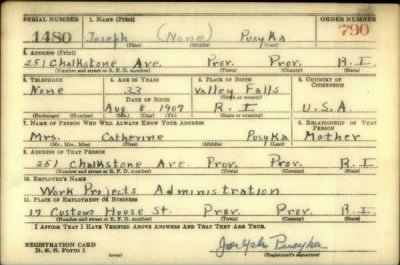 SERIAL NUMBER 1. NAME (Print) ORDER NUMBER
1480 Joseph (None) Pusyka 790
(First) (Middle) (Last)
2. ADDRESS (Print)
251 Chalkstone Ave. Prov. Prov. R.I.
(Number and street or R. F. D. number) (Town) (County) (State)
3. TELEPHONE 4. AGE IN YEARS 5. PLACE OF BIRTH 6. COUNTRY OF CITIZENSHIP
None 33 Valley Falls
DATE OF BIRTH (Town or county)
Aug 8 1907 R.I. U.S.A.
(Exchange) (Number) (Mo.) (Day) (Yr.) (State or country)
7. NAME OF PERSON WHO WILL ALWAYS KNOW YOUR ADDRESS 8. RELATIONSHIP OF THAT PERSON
Mrs. Catherine Pusyka Mother
(Mr., Mrs., Miss) (First) (Middle) (Last)
9. ADDRESS OF THAT PERSON
251 Chalkstone Ave. Prov. Prov. R.I.
(Number and street or R. F. D. number) (Town) (County) (State)
10. EMPLOYER'S NAME
Work Projects Administration
11. PLACE OF EMPLOYMENT OR BUSINESS
17 Custom House St. Prov. Prov. R.I.
(Number and street or R. F. D. number) (Town) (County) (State)
I AFFIRM THAT I HAVE VERIFIED ABOVE ANSWERS AND THAT THEY ARE TRUE.
REGISTRATION CARD
D. S. S. Form 1 Joseph Pusyka